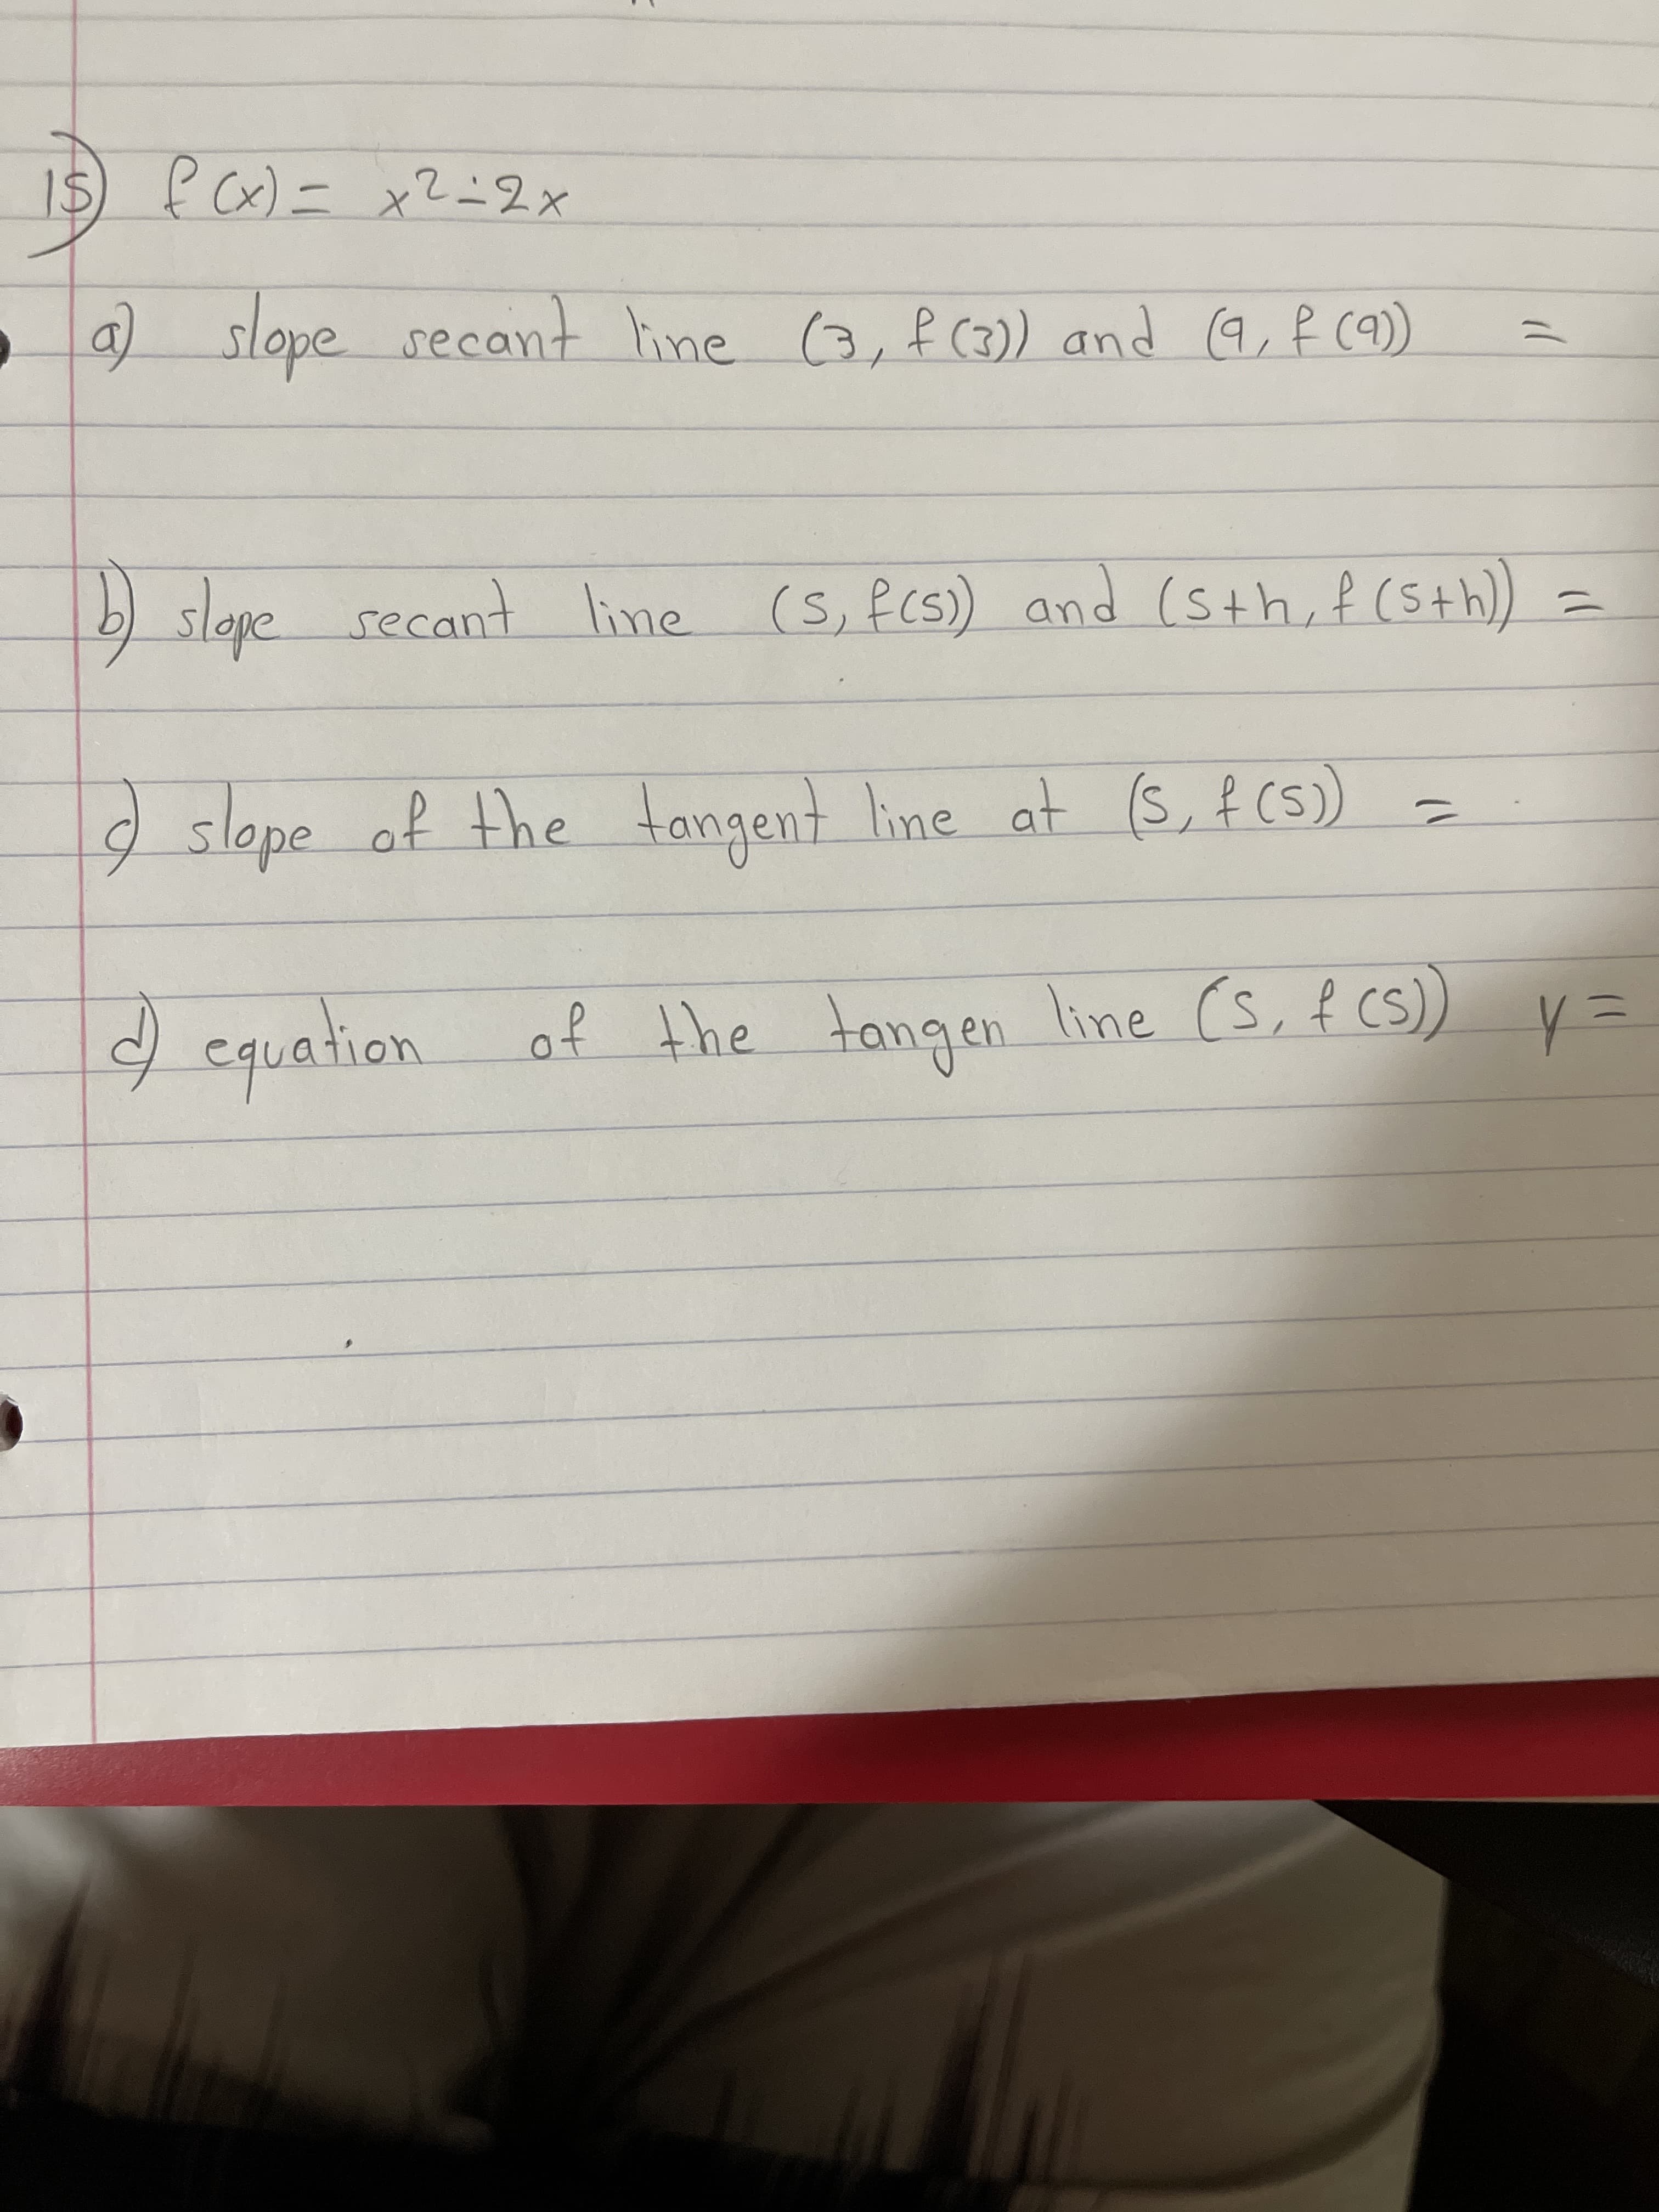 15) f(x) = x² - 2x
a) slope secant line (3, f(3)) and (9, f(9)) =
b) slope secant line (5, f(5)) and (5+h, f(5+h)) =
c) slope of the tangent line at (5, f(5)) =
d) equation of the tangen line (5, f(5)) y =